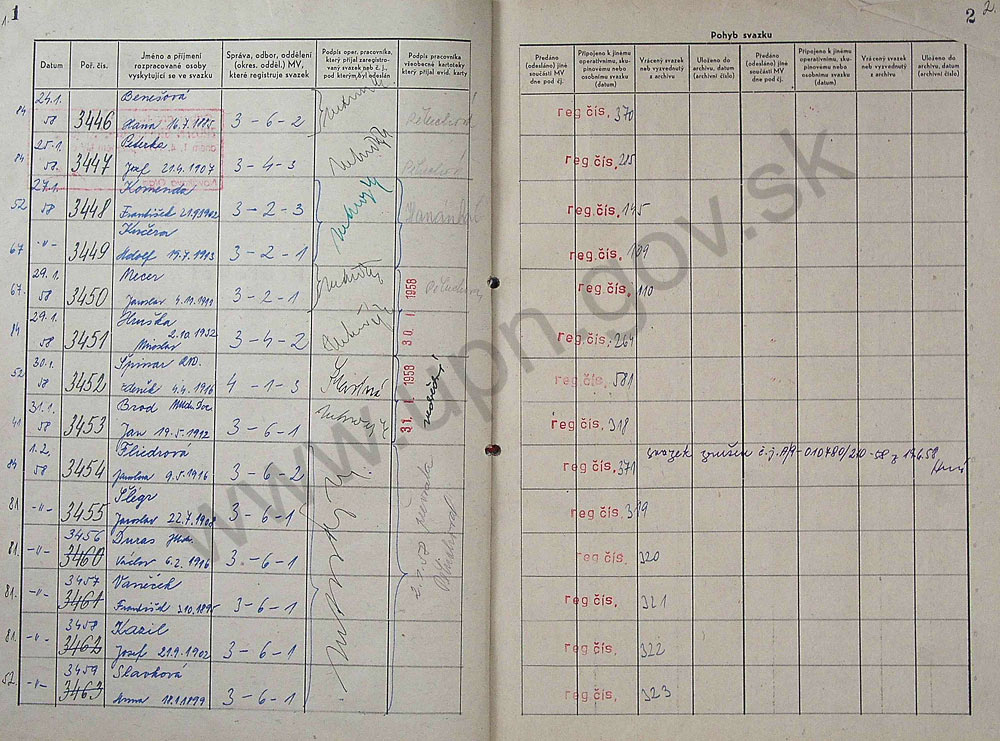 1
1.
Datum
Poř. čís.
Jméno a příjmení rozpracované osoby vyskytující se ve svazku
Správa, odbor, oddělení (okres. odděl.) MV, které registruje svazek
Podpis oper. pracovníka, který přijal zaregistrovaný svazek neb č. j., pod kterým byl odeslán
Podpis pracovníka všeobecné kartoteky který přijal evid. karty
24.1. Benešová
84 58 3446 Hana 16.7.1885 3-6-2
25.1 Peterka
84 58. 3447 Josef 21.4.1907 3-4-3
27.1. Komenda
52 58 3448 František 21.9.1902 3-2-3
Kučera
67 -"- 3449 Adolf 19.7.1913 3-2-1
29.1. Mecer
67. 58 3450 Jaroslav 4.11.1911 3-2-1
29.1. Hruška
84 58 3451 Miroslav 2.10.1932 3-4-2
30.1. 1958
30.1. Špinar
52 58 3452 Zdeněk 4.4.1916 4-1-3 Šťastná
31.1. 1958
31.1. Brod Mudr. Doc
41 58 3453 Jan 19.5.1912 3-6-1
1.2. Fliedrová
84 58 3454 Jaroslava 9.5.1916 3-6-2
Šlégr
81 -"- 3455 Jaroslav 22.7.1908 3-6-1
3456 Duras
81. -"- 3460 Václav 6.2.1916 3-6-1
3457 Vaněček
81. -"- 3461 František 3.10.1895 3-6-1
3458 Kazil
81 -"- 3462 Josef 21.9.1902 3-6-1
3459 Slavková
52. -"- 3463 Anna 18.1.1899 3-6-1
2
2.
Pohyb svazku
Předáno (odesláno) jiné součásti MV dne pod čj.
Připojeno k jinému operativnímu, skupinovému nebo osobnímu svazku (datum)
Vrácený svazek neb vyzvednutý z archivu
Uloženo do archivu, datum (archivní číslo)
Předáno (odesláno) jiné součásti MV dne pod čj.
Připojeno k jinému operativnímu, skupinovému nebo osobnímu svazku (datum)
Vrácený svazek neb vyzvednutý z archivu
Uloženo do archivu, datum (archivní číslo)
reg čís. 370
reg čís. 215
reg čís. 145
reg čís. 109
reg čís. 110
reg čís. 264
reg čís. 581
reg čís. 318
reg čís. 371 svazek zrušen č.j. A/9-010780/210-58 z 17.6.58
reg čís. 319
reg čís. 320
reg čís. 321
reg čís. 322
reg čís. 323
www.upn.gov.sk